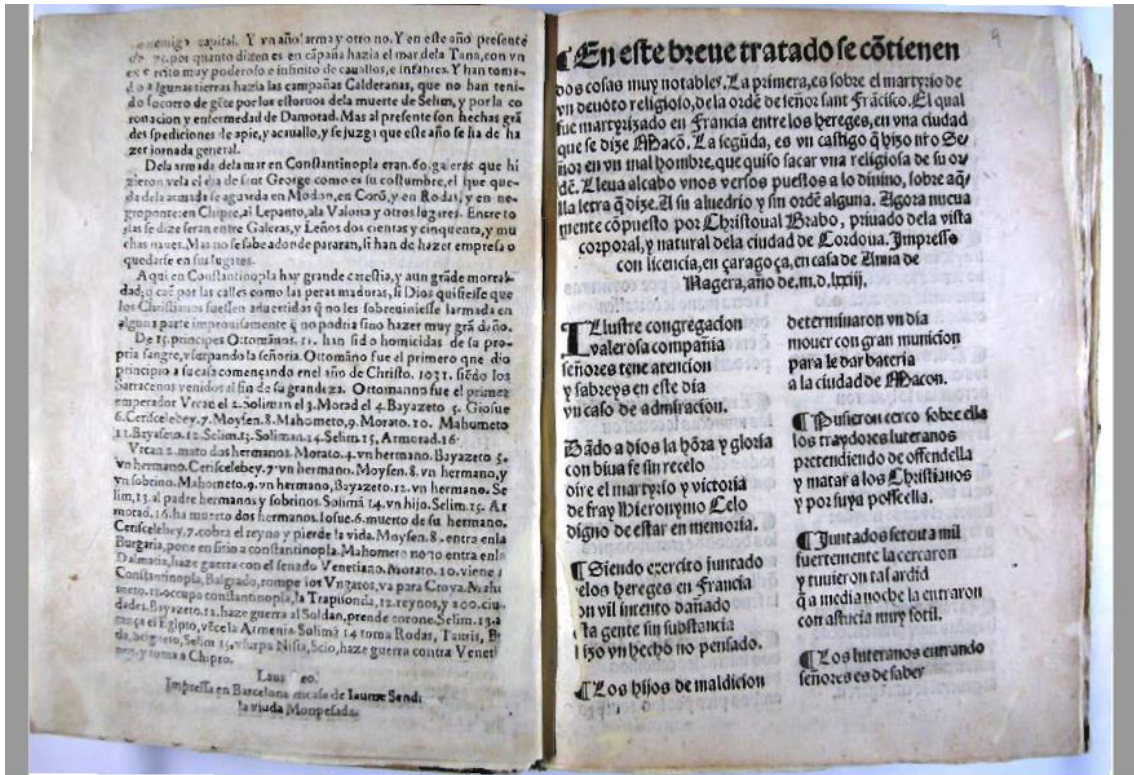 enemigo capital. Y vn año arma y otro no. Y en este año presente
por quanto dizen es en cāpaña hazia el mar dela Tana, con vn
muy poderoso e infinito de cauallos, e infantes. Y han toma-
do algunas tierras hazia las campañas Calderanas, que no han teni-
do socorro de gēte por los estoruos dela muerte de Selim, y por la co
ronacion y enfermedad de Damorad. Mas al presente son hechas grā
des spediciones de apie, y acauallo, y se juzga que este año se ha de ha
zer jornada general.
Dela armada dela mar en Constantinopla eran. 60. galeras que hi
zieron vela el dia de sant George como es su costumbre, el que que-
da dela armada se aguarda en Modon, en Corō, y en Rodas, y en ne-
groponte: en Chipre, al Lepanto, ala Valona y otros lugares. Entre to
das se dize seran entre Galeras, y Leños dos cientas y cinquenta, y mu
chas naues. Mas no se sabe adonde pararan, si han de hazer empresa o
quedarse en sus lugares.
Aqui en Constantinopla hay grande carestia, y aun grāde mortal-
dad, q̄ caē por las calles como las peras maduras, si Dios quisiesse que
los Christianos fuessen aduertidas q̄ no les sobreuiniesse larmada en
alguna parte improuisamente q̄ no podria sino hazer muy grā daño.
De 15. principes Ottomānos. 11. han sido homicidas de su pro-
pria sangre, vsurpando la señoria. Ottomāno fue el primero que dio
principio a su casa començando enel año de Christo. 1031. siēdo los
Sarracenos venidos al fin de su grandeza. Ottomanno fue el primer
emperador Vrcan el 2. Soliman el 3. Morad el 4. Bayazeto 5. Giosue
6. Ceriscelebey. 7. Moysen. 8. Mahometo, 9. Morato. 10. Mahumeto
11. Bayaseto. 12. Selim. 13. Soliman. 14. Selim. 15, Armorad. 16.
Vrcan 2. mato dos hermanos. Morato. 4. vn hermano. Bayazeto 5.
vn hermano. Ceriscelebey. 7. vn hermano. Moysen. 8. vn hermano, y
vn sobrino. Mahometo. 9. vn hermano, Bayazeto. 12. vn hermano. Se
lim, 13. al padre hermanos y sobrinos. Solimā 14. vn hijo. Selim. 15. Ar
morad. 16. ha muerto dos hermanos. Iosue. 6. muerto de su hermano.
Ceriscelebey, 7. cobra el reyno y pierde la vida. Moysen. 8. entra enla
Burgaria, pone en sitio a constantinopla. Mahometo no 10 entra enla
Dalmatia, haze guerra con el senado Venetiano. Morato. 10. viene a
Constantinopla, Balgrado, rompe los Vngaros, va para Croya. Mahu
meto. 11. occupa constantinopla, la Trapisonda, 12. reynos, y 200. ciu-
dades. Bayazeto. 12. haze guerra al Soldan, prende corone. Selim. 13. a
el Egipto, vēce la Armenia. Solimā 14 toma Rodas, Tauris,
Selim 15. vsurpa Nisia, Scio, haze guerra contra Venet
y toma a Chipro.
Laus Deo.
Impressa en Barcelona en casa de Iaume Sendr
la viuda Monpesada.
9
¶ En este breue tratado se cōtienen
dos cosas muy notables. La primera, es sobre el martyrio de
vn deuoto religioso, de la ordē de señor sant Frācisco. El qual
fue martyrizado en Francia entre los hereges, en vna ciudad
que se dize Macō. La segūda, es vn castigo q̄ hizo nro Se
ñor en vn mal hombre, que quiso sacar vna religiosa de su or
dē. Lleua al cabo vnos versos puestos a lo diuino, sobre aq̄
lla letra q̄ dize. A su aluedrio y sin ordē alguna. Agora nueua
mente cōpuesto por Christoual Brabo, priuado dela vista
corporal, y natural dela ciudad de Cordoua. Impresso
con licencia, en çaragoça, en casa de Anna de
Nagera, año de. m. d. lxxiij.
Illustre congregacion
valerosa compañia
señores tene atencion
y sabreys en este dia
vn caso de admiracion.
Dādo a dios la hōra y gloria
con biua fe sin recelo
oire el martyrio y victoria
de fray Hieronymo Celo
digno de estar en memoria.
¶ Siendo exercito juntado
elos hereges en Francia
on vil intento dañado
sta gente sin substancia
izo vn hecho no pensado.
¶ Los hijos de maldicion
determinaron vn dia
mouer con gran municion
para le dar bateria
a la ciudad de Macon.
¶ Pusieron cerco sobre ella
los traydores luteranos
pretendiendo de offendella
y matar a los Christianos
y por suya posseella.
¶ Juntados setenta mil
fuertemente la cercaron
y tuuieron tal ardid
q̄ a media noche la entraron
con astucia muy sotil.
¶ Los luteranos entrando
señores es de saber